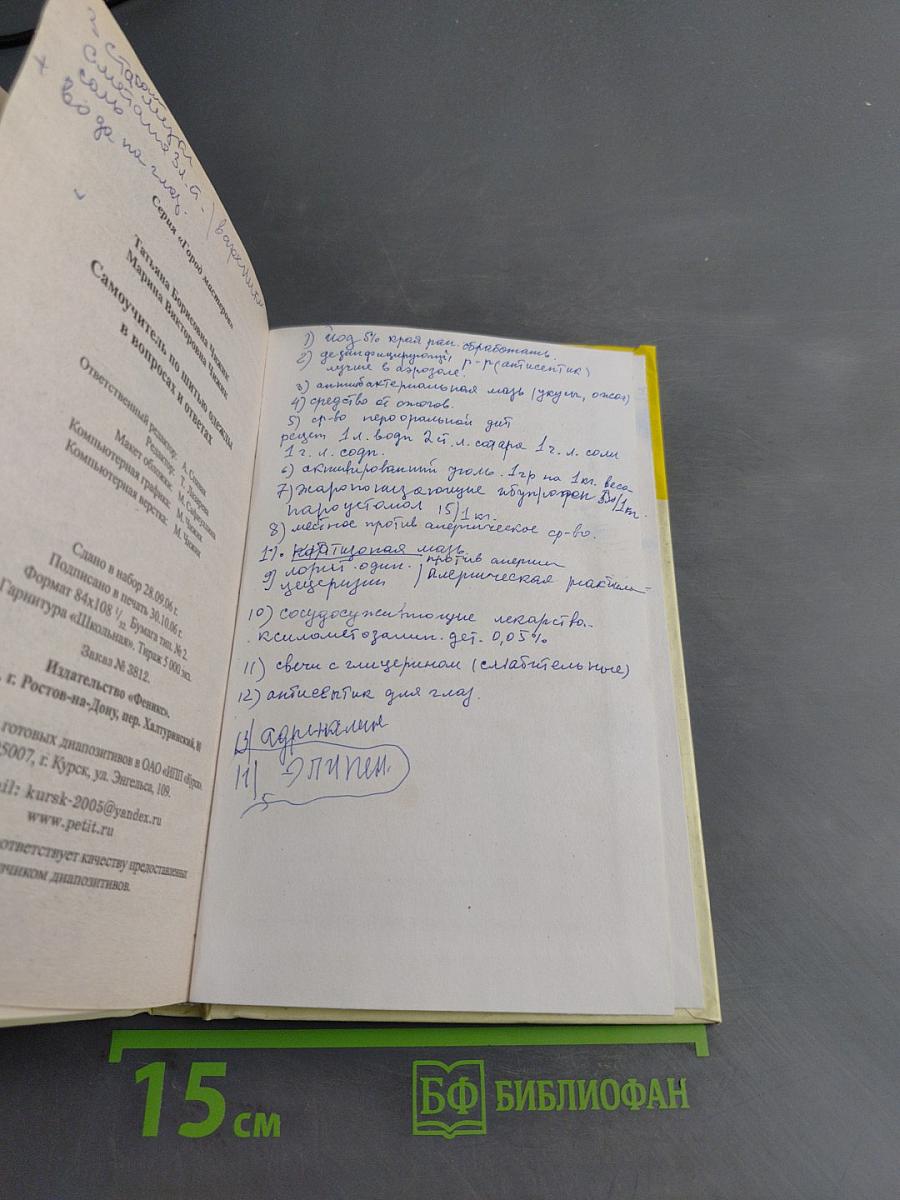 2 стакан
Сметана 3 л.ст. / вареники
соль
+ вода на глаз.
Серия «Город мастеров»
Татьяна Борисовна Чижик
Марина Викторовна Чижик
Самоучитель по шитью одежды
в вопросах и ответах
Ответственный редактор:
Редактор:
Макет обложки:
Компьютерная графика: М. Чижик
Компьютерная верстка: М. Чижик
Сдано в набор 28.09.06 г.
Подписано в печать 30.10.06 г.
Формат 84x108 1/32. Бумага тип. № 2.
Гарнитура «Школьная». Тираж 5 000 экз.
Заказ № 3812.
Издательство «Феникс».
, г. Ростов-на-Дону, пер. Халтуринский,
готовых диапозитивов в ОАО «ИПП «Курск».
5007, г. Курск, ул. Энгельса, 109.
ail: kursk-2005@yandex.ru
www.petit.ru
ответствует качеству предоставленных
зчиком диапозитивов.
1) йод 5% край ран. обработать.
2) дезинфицирующий р-р (антисептик)
лучше в аэрозоле.
3) антибактериальная мазь (укусы, ожог)
4) средство от ожогов.
5) ср-во перооральной дит
рецепт 1 л. воды 2 ст. л. сахара 1 ч. л. соли
1 ч. л. соды.
6) активированный уголь. 1 гр на 1 кг. веса
7) жаропонизающие ибупрофен /1 кг.
пароцтомол 15/1 кг.
8) местное против алергическое ср-во.
1%. мазь.
9) лорит. один. против алергии
цецеризин / алергическая
10) сосудосуживающие лекарства.
ксилометозалин. дет. 0,05%
11) свечи с глицерином (слабительные)
12) антисептик для глаз.
13) адреналин
14) Эпипен.
15 см
БФ БИБЛИОФАН